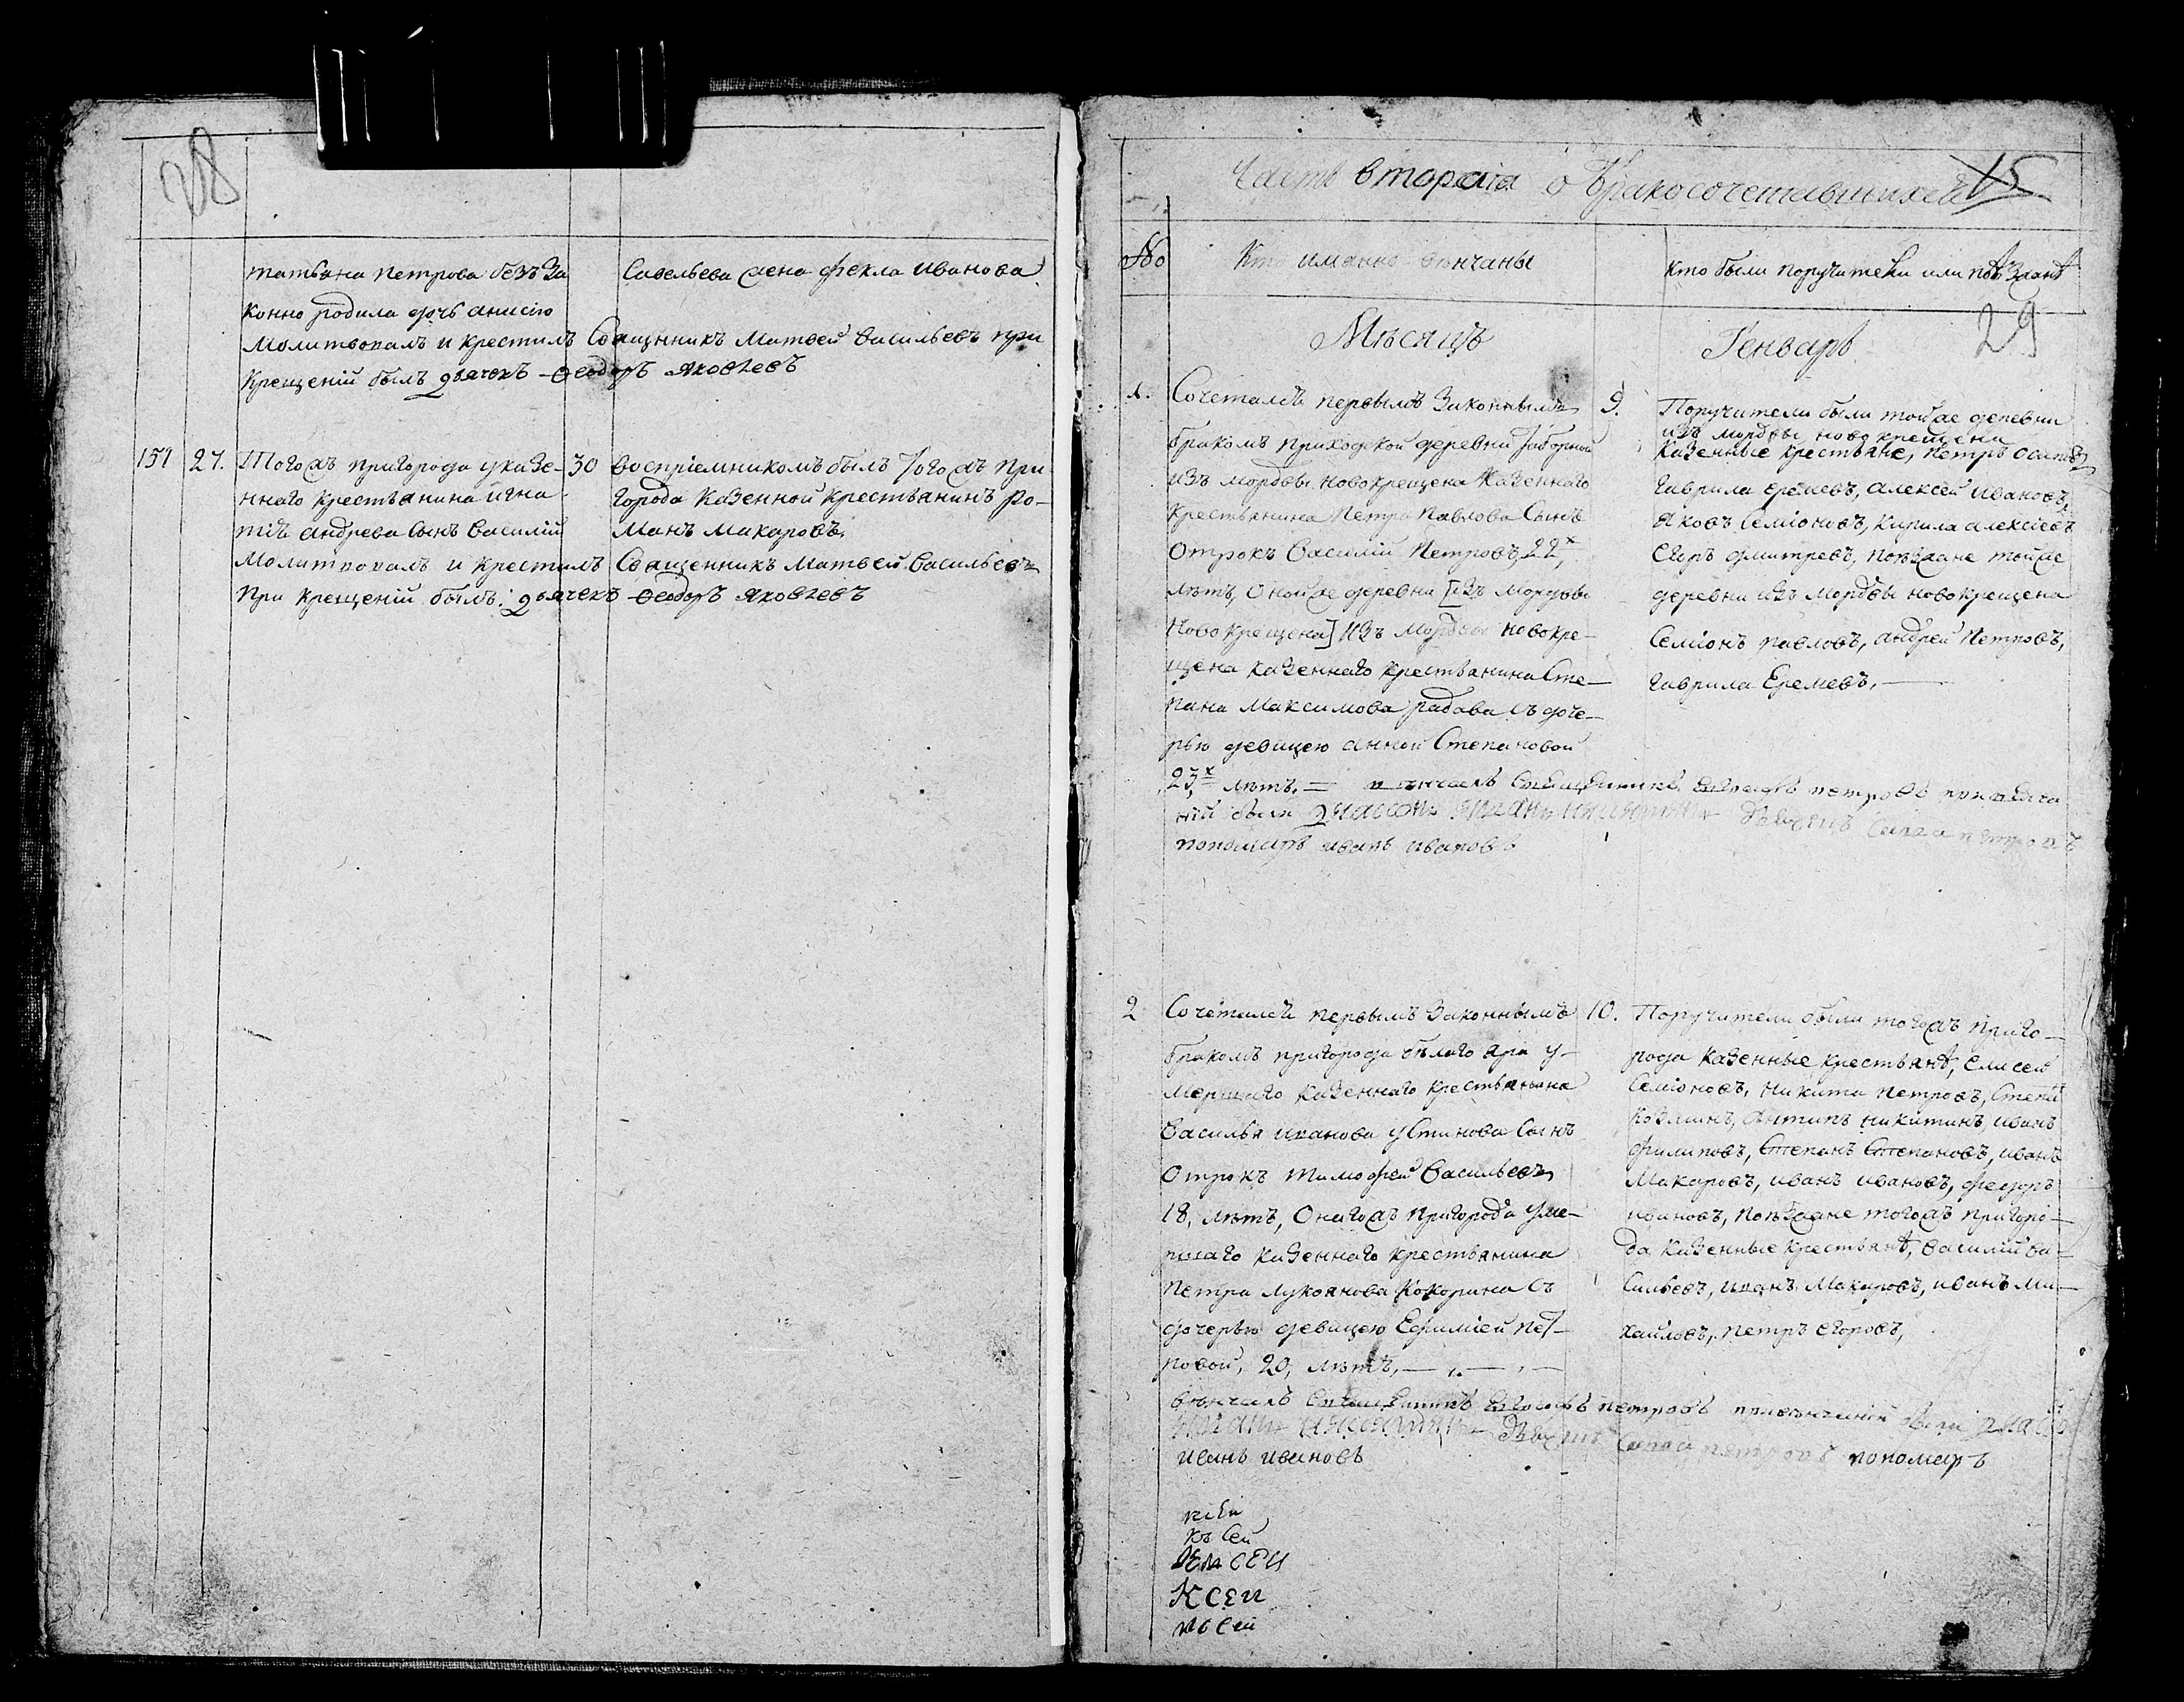 28
татьяна петрова безъ за
конно родила дочь анисію
Савельева жена фекла иванова
молитвовалъ и крестилъ Священникъ Матвей Васильевъ при
крещеніи былъ дьячекъ Ѳеодоръ Яковлевъ
151 27. Тогожъ пригорода указе-
ннаго крестьянина игна
тія андрева сынъ Василій
30 воспріемникомъ былъ тогожъ при
города казенной крестьянинъ Ро-
манъ Макаровъ.
Молитвовалъ и крестилъ Священникъ Матвей Васильевъ
При крещеніи былъ дьячекъ Ѳеодоръ Яковлевъ
Часть вторая о бракосочетавшихся
15
№
Кто имянно венчаны
кто были поручители или поезжанѣ
29
Мѣсяцъ
Генварь
1. Сочетался первымъ законнымъ
бракомъ приходской деревни Заборной
изъ мордвы новокрещена казеннаго
крестьянина Петра Павлова сынъ
отрокъ Василій Петровъ, 22х
лѣтъ, оной же деревни [изъ мордвы
новокрещена] изъ мордвы новокре-
щена казеннаго крестьянина Сте-
пана Максимова радава съ доче-
рью девицею анной Степановой
23х лѣтъ. =
9. Поручители были тойже деревни
изъ мордвы новокрещена
казенные крестьяне, петръ осиповъ
гаврила еремевъ, алексей ивановъ,
яковъ Семіоновъ, кирила алексіевъ
егоръ дмитревъ, поезжане тойже
деревни изъ мордвы новокрещена
Семіонъ павловъ, андрей петровъ,
гаврила Еремевъ,
венчалъ Священникъ петровъ
ніи были
пономарь иванъ ивановъ
2 Сочетался первымъ законнымъ
бракомъ пригорода белаго яра у-
мершаго казеннаго крестьянина
Василья иванова устинова сынъ
отрокъ тимофей Васильевъ
18, лѣтъ, онагожъ пригорода уме-
ршаго казеннаго крестьянина
петра лукоянова кокорина съ
дочерью девицею Ефиміей пет-
ровой, 20, лѣтъ,
10. Поручители были тогожъ приго-
рода казенные крестьянѣ, Елисей
Семіоновъ, никита петровъ, Степа
козминъ, антипъ никитинъ, иванъ
филиповъ, Степанъ Степановъ, иванъ
Макаровъ, иванъ ивановъ, федоръ
ивановъ, поезжане тогожъ пригоро-
да казенные крестьянѣ, Василій ва-
сильевъ, иванъ Макаровъ, иванъ Ми-
хайловъ, петръ егоровъ,
венчалъ Священникъ петровъ привенчаніи были
петровъ пономарь
иванъ ивановъ
къ сей
ксеи